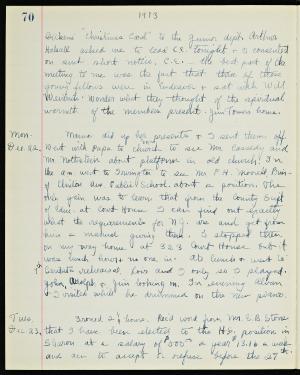 70
1913
Dickens "Christmas Carol" to the Junior dept. Arthur
asked me to lead C.E. tonight & I consented
on such short notice, C.E. — the best part of the
meeting to me was the fact that three of those
young fellows were in Endeavor & sat with Will
. Wonder what they thought of the spiritual
warmth of the members present. Jim Towns home.
Mon.
Dec. 22,
Mama did up her presents & I sent them off.
Went with Papa to church to see Mr. Cassedy and
Mr. about platform in old church. In
the am went to Irvington to see Mr. F.H. Morrell, Prin.
of Union Ave Public School about a position then
was to learn from the County Supt
at Court House. I can find out exactly
what the requirements for N.J. are and get from
him a manual giving them. I stopped there
on my way home at 323 Court House but it
was lunch hour & no one in. Ate lunch & went to
rehearsal, Lois and I only so I played.
John, Adolph & Jim looking on. In evening Alban
& I visited while he drummed on the new piano.
Tues.
Dec 23,
Ironed 2 1/2 hours. Rec'd word from Mr. E.B. Stone
that I have been elected to the H.S. position in
Sharon at a salary of $500 a year $13.16 a week
and am to accept or refuse before the 27th.